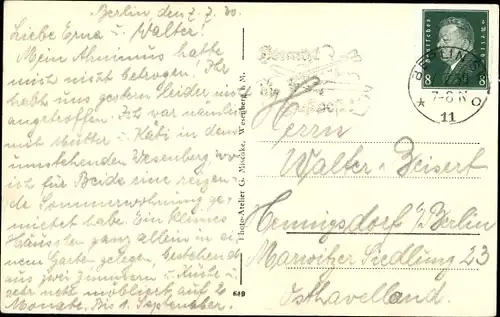 Berlin den 7.7.30.
Liebe Erna u. Walter!
Mein Ahnimus hatte
mich nicht betrogen! Ihr
habt uns gestern leider nicht
angetroffen. Ich war nämlich
mit Mutter u. Käti in dem
umstehenden Wesenberg wo
ich für Beide eine reizen-
de Sommerwohnung ge-
mietet habe. Ein kleines
Häuschen ganz allein in ei-
nem Garten gelegen, bestehend
aus zwei Zimmern u. Küche u.
sehr nett möbliert auf 2
Monate, bis 1. September.
Photo-Atelier G. Mischke, Wesenberg i. M.
649
DEUTSCHES REICH
8 8
BERLIN
7-8 N
* 11
Herrn
Walter Zeisert
Hennigsdorf b/Berlin
Marwitzer Siedlung 23
Osthavelland.